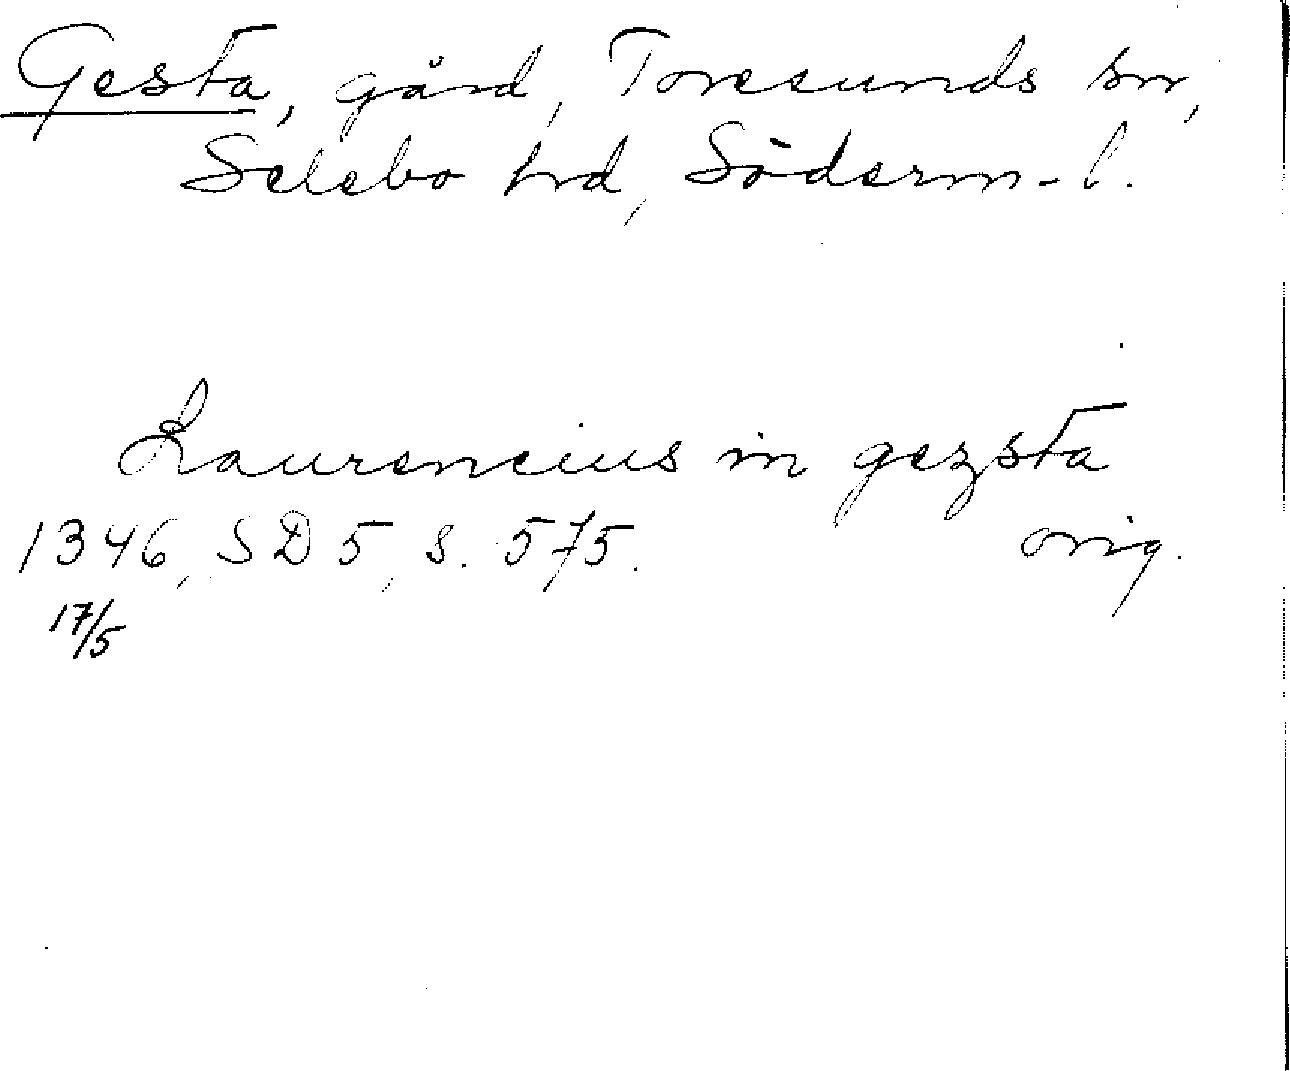 Gesta, gård, Toresunds sn,
Selebo hd, Söderm-l.
Laurencius in gezsta
1346, SD 5, s. 575. orig.
17/5